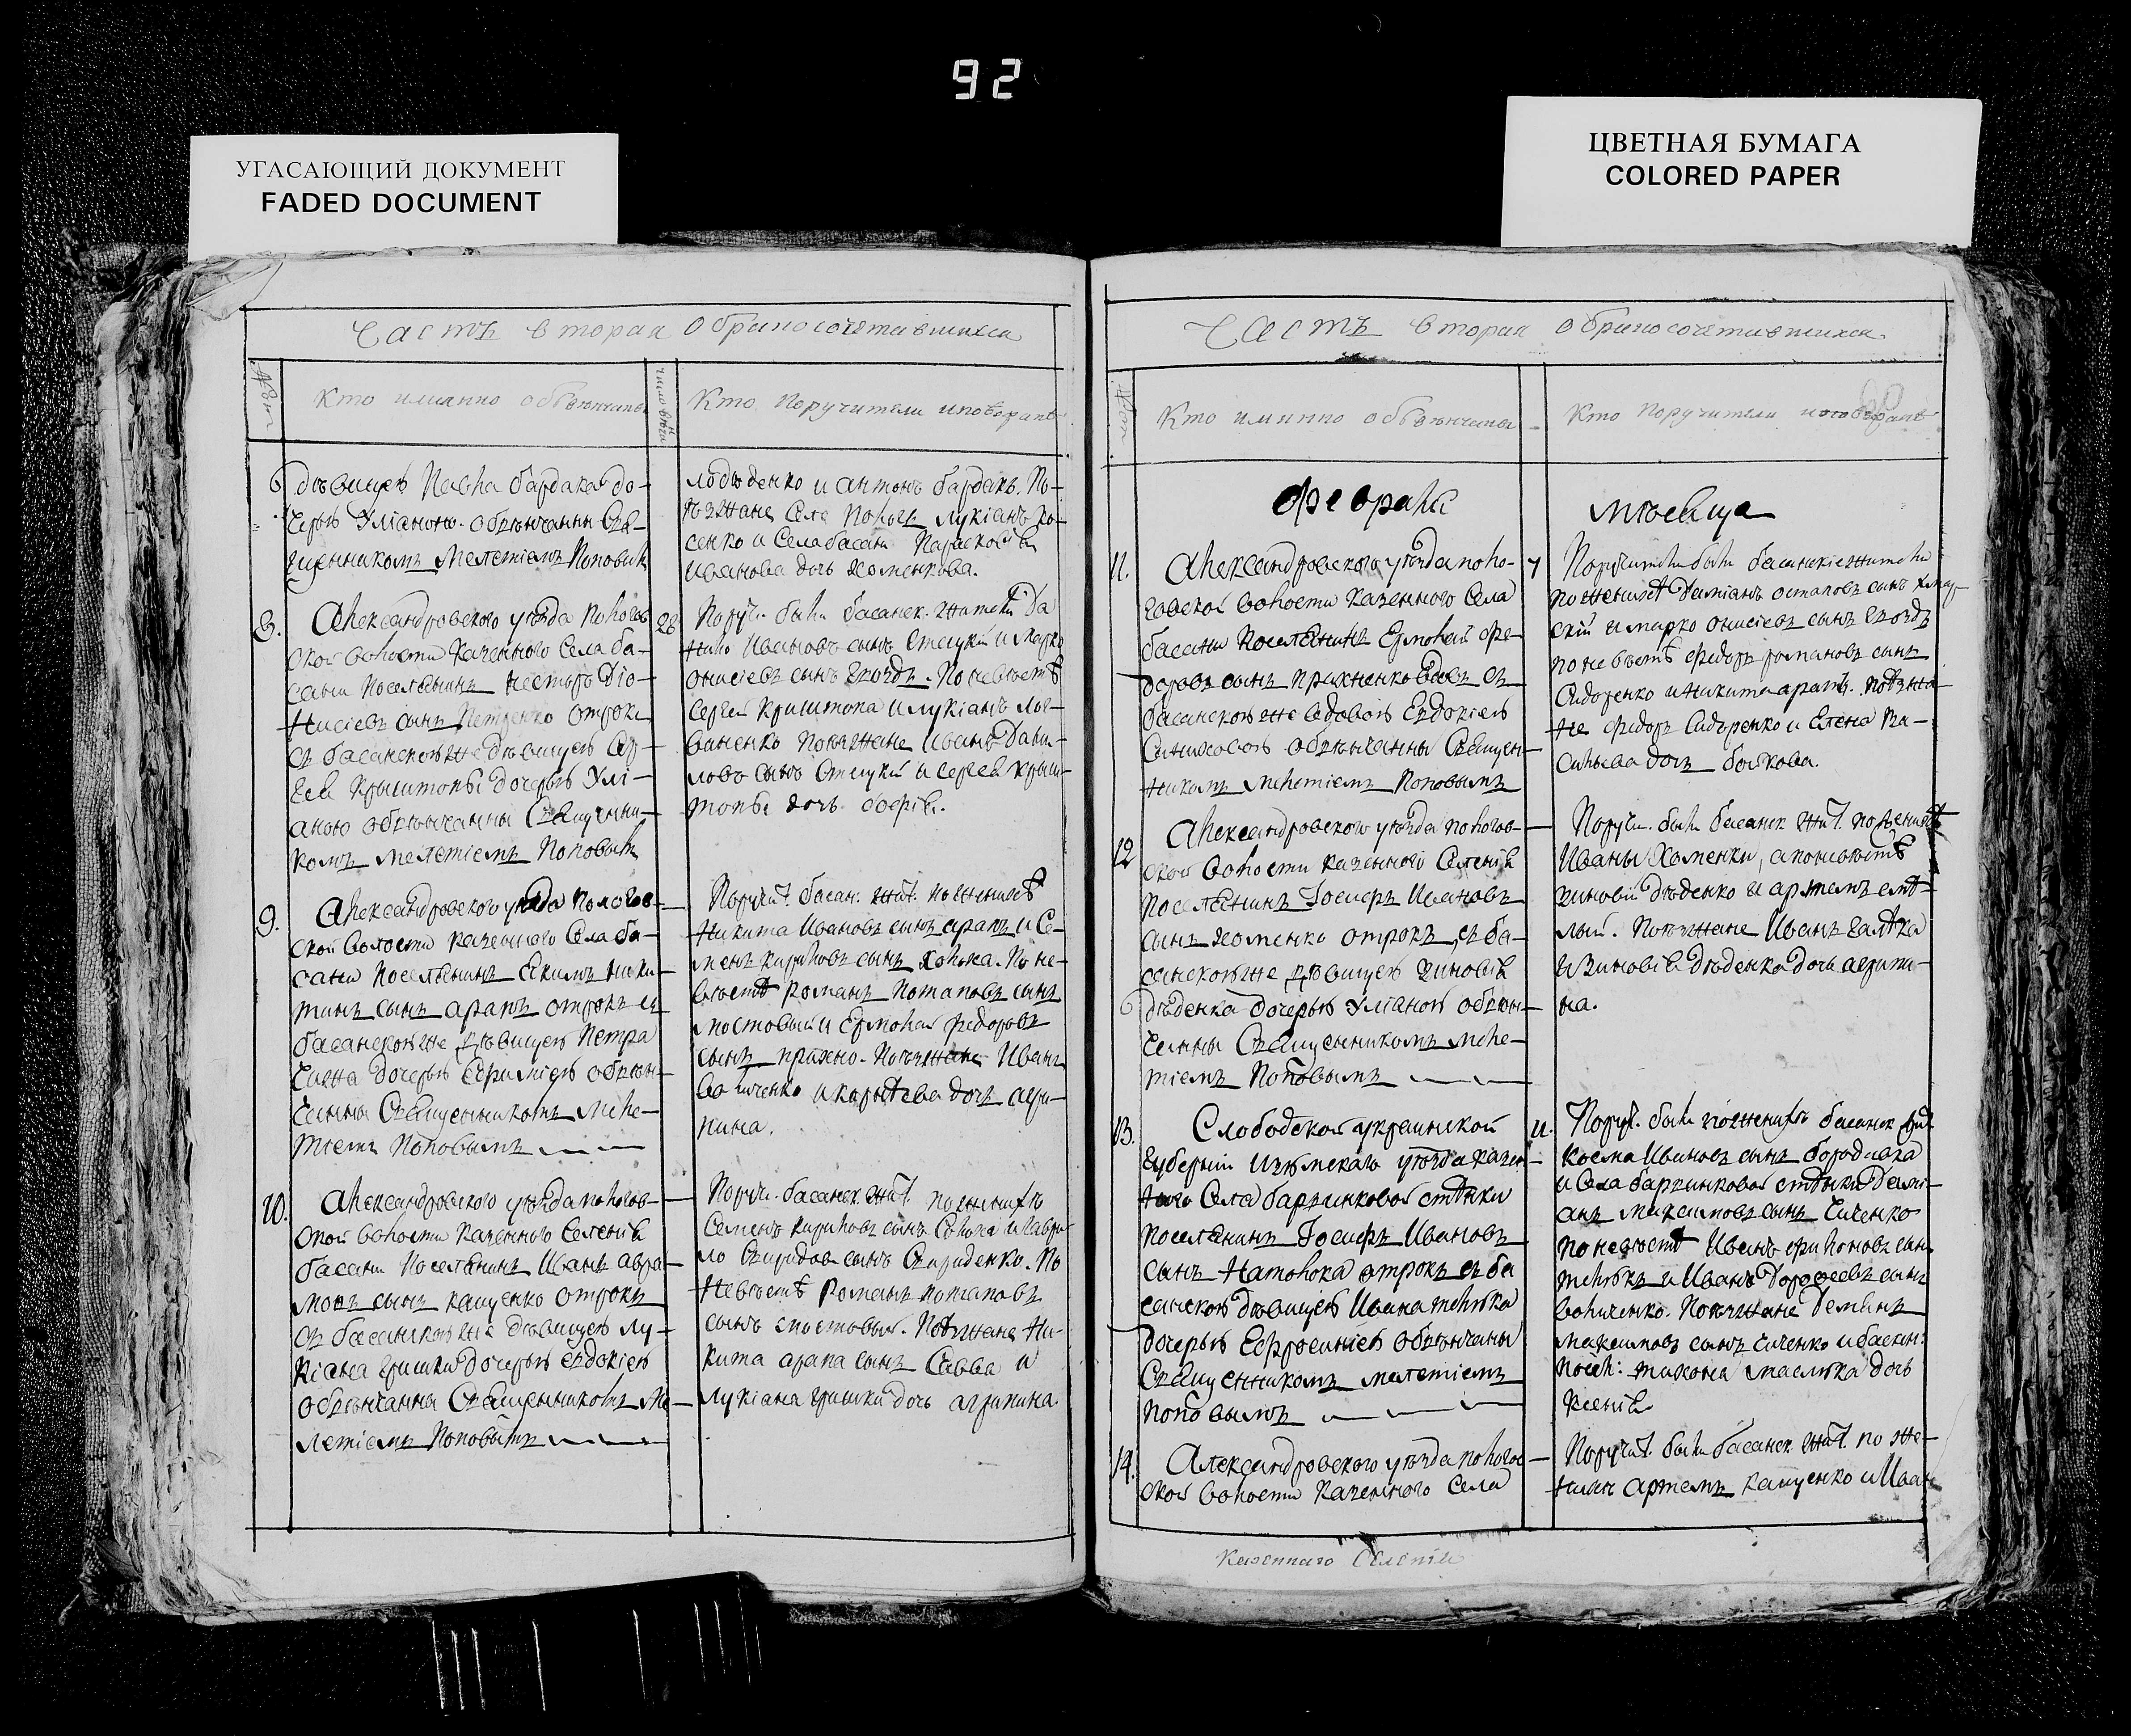 92
УГАСАЮЩИЙ ДОКУМЕНТ
FADED DOCUMENT
ЦВЕТНАЯ БУМАГА
COLORED PAPER
Часть вторая о бракосочетавшихся
Кто имянно обвѣнчаны
Кто поручители и поезжане
дѣвицею Павла бардака до-
черью Уліаною. обвѣнчаны Свя-
щенникомъ Мелетіемъ Поповым
лодѣденко и антонъ бардакъ. По-
ѣзжане Села Пологъ лукіанъ
сенко и Села басани Параскевія
Иванова дочь хоменкова.
8.
Александровского уѣзда пологов
ской волости казенного Села ба-
сани поселянинъ несторъ діо-
нисіевъ сынъ Петренко отрокъ
съ басанскою же дѣвицею Сер-
гея Крыштопы дочерью Улі-
аною обвѣнчанны Священни-
комъ мелетіемъ Поповым
28
Поручи. были басанск. жители да
нило Ивановъ сынъ Стецкій и марко
онисіевъ сынъ гвоздь. По невѣстѣ
Сергей Крыштопа и лукіанъ лог-
виненко поезжане Иванъ Дани-
ловъ сынъ Стецкій и сергея крыш-
топы дочь софія.
9.
Александровского уѣзда пологов-
ской волости казенного Села ба-
сани поселянинъ Екимъ ники-
тинъ сынъ арапъ отрокъ съ
басанскою же дѣвицею Петра
дочерью Ефиміею обвѣн-
чанны Священникомъ Меле-
тіемъ Поповымъ
Поручит. басан. жит. по женихѣ
Никита Ивановъ сынъ арапъ и Се-
менъ кириловъ сынъ По не-
вѣстѣ романъ Потаповъ сынъ
мостовый и Ермолай федоровъ
сынъ пражно. Поезжане Иванъ
дочь агри-
пина.
10.
Александровского уѣзда пологов-
ской волости казенного Селенія
басани поселянинъ Иванъ авра-
мовъ сынъ кащенко отрокъ
съ басанскою же дѣвицею лу-
кіана гришки дочерью евдокіею
обвѣнчанны Священникомъ Ме-
летіемъ Поповымъ
Поручи. басанск. жит. по женихѣ
Семенъ кириловъ сынъ и гаври
ло Свиридовъ сынъ Свириденко. По
невѣстѣ Романъ потаповъ
сынъ мостовый. Поезжане Ни-
кита арапа сынъ Савва и
лукіана гришки дочь агрипина.
Часть вторая о бракосочетавшихся
Кто имянно обвѣнчаны
Кто поручители и поезжане
февраля
мѣсяца
11.
Александровского уѣзда поло-
говской волости казенного Села
басани поселянинъ Ермолай фе-
доровъ сынъ пражненко вдовъ съ
басанскою же вдовою Евдокіею
обвѣнчанны Священ-
никомъ мелетіемъ Поповымъ
7
Поручители были басанскіе жители
по женихѣ Даміанъ остаповъ сынъ
скій и марко онисіевъ сынъ гвоздь
по невѣстѣ федоръ романовъ сынъ
Сидоренко и никита арапъ. поезжа-
не федоръ Сидоренко и Елена Ва-
сильева дочь бойкова.
12
Александровского уѣзда пологов-
ской волости казенного Селенія
поселянинъ Іосифъ Ивановъ
сынъ хоменко отрокъ съ ба-
санскою же дѣвицею зиновія
дѣденка дочерью Уліаною обвѣн-
чанны Священникомъ меле-
тіемъ Поповымъ
Поручи. были басанск жит. по женихѣ
Иваны Хоменки, а по невѣстѣ
зиновій дѣденко и артемъ
лый. Поезжане Иванъ галѣка
и Зиновія дѣденка дочь агрипи-
на.
13.
Слободской украинской
губерніи изюмскаго уѣзда казен-
ного Села барвинковой стѣнки
поселянинъ Іосифъ Ивановъ
сынъ Натолока отрокъ съ ба
санскою дѣвицею Ивана
дочерью Ефросиніею обвѣнчаны
Священникомъ мелетіемъ
поповымъ
11.
Поруч. были по женихѣ басанск жит
косма Ивановъ сынъ бородавка
и Села барвинковой стѣнки Деми-
анъ максимовъ сынъ
по невѣстѣ Иванъ сынъ
и Иванъ Дорофеевъ сынъ
Поезжане Деміянъ
максимовъ сынъ и басан:
посел: тихона дочь
ксенія.
14.
Александровского уѣзда пологов-
ской волости казенного Села
Поручит. были басанск. жит. по же-
нихѣ артемъ кащенко и Иван
казеннаго селенія